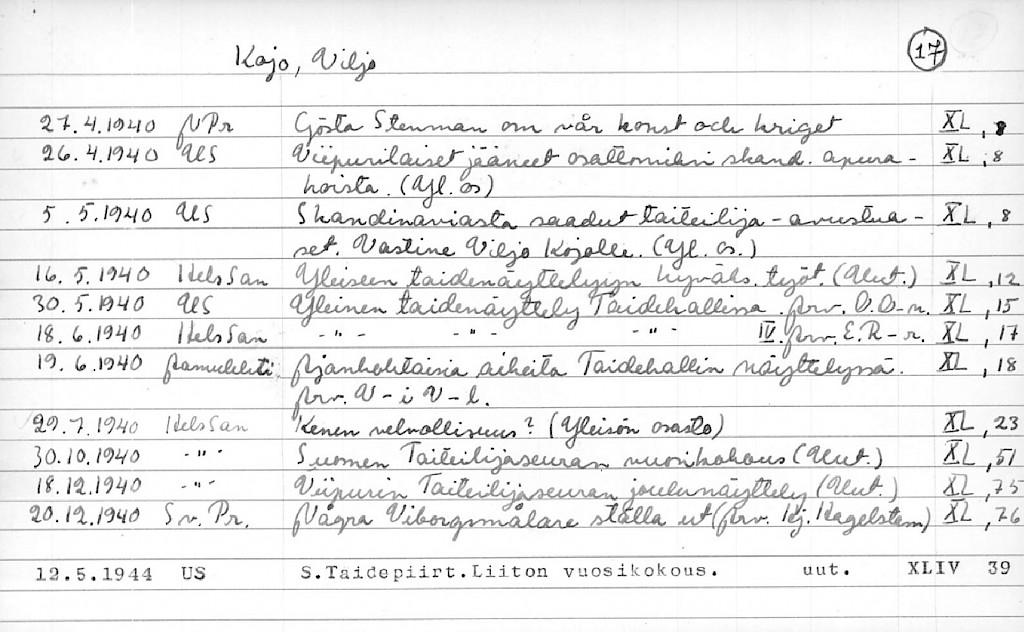 Kojo, Viljo 17
27.4.1940 NPr Gösta Stenman om vår konst och kriget XL, 8
26.4.1940 US Viipurilaiset jääneet osattomiksi skand. apura-
hoista. (Yl. os) XL, 8
5.5.1940 US Skandinaviasta saadut taiteilija-avustuk-
set. Vastine Viljo Kojolle. (Yl. os.) XL, 8
16.5.1940 HelsSan Yleiseen taidenäyttelyyn hyväks. työt. (Uut.) XL, 12
30.5.1940 US Yleinen taidenäyttely Taidehallissa. arv. O.O-n. XL, 15
18.6.1940 HelsSan -"- -"- -"- IV. arv. E.R-r. XL, 17
19.6.1940 Aamulehti Ajankohtaisia aiheita Taidehallin näyttelyssä.
arv. V-i V-l. XL, 18
29.7.1940 HelsSan Kenen velvollisuus? (Yleisön osasto) XL, 23
30.10.1940 -"- Suomen Taiteilijaseuran vuosikokous (Uut.) XL, 51
18.12.1940 -"- Viipurin Taiteilijaseuran joulunäyttely (Uut.) XL, 75
20.12.1940 Sv. Pr. Några Viborgsmålare ställa ut (arv. Hj. Hagelstam) XL, 76
12.5.1944 US S.Taidepiirt.Liiton vuosikokous. uut. XLIV 39